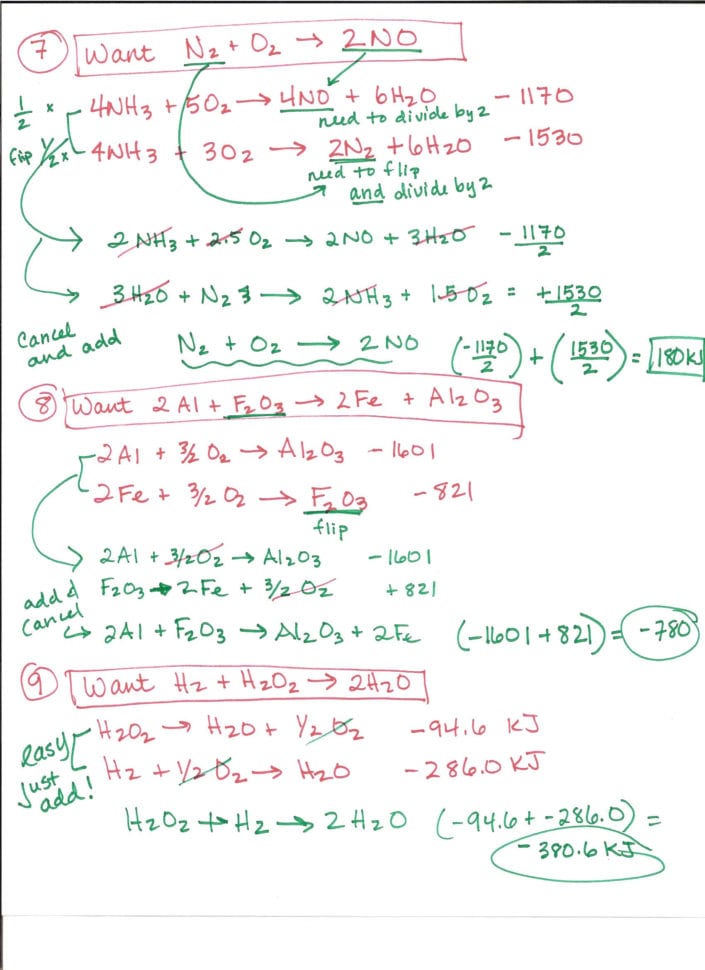 7 Want N2 + O2 → 2NO
1/2 x 4NH3 + 5O2 → 4NO + 6H2O -1170
need to divide by 2
flip 1/2 x 4NH3 + 3O2 → 2N2 + 6H2O -1530
need to flip
and divide by 2
2NH3 + 2.5 O2 → 2NO + 3H2O -1170/2
3H2O + N2 3 → 2NH3 + 1.5O2 = +1530/2
Cancel and add N2 + O2 → 2NO (-1170/2) + (1530/2) = 180KJ
8 Want 2Al + F2O3 → 2Fe + Al2O3
2Al + 3/2 O2 → Al2O3 -1601
2Fe + 3/2 O2 → F2O3 -821
flip
2Al + 3/2O2 → Al2O3 -1601
F2O3 → 2Fe + 3/2 O2 +821
add & cancel ↪ 2Al + F2O3 → Al2O3 + 2Fe (-1601+821) = -780
9 Want H2 + H2O2 → 2H2O
H2O2 → H2O + 1/2 O2 -94.6 KJ
easy just add!
H2 + 1/2 O2 → H2O -286.0 KJ
H2O2 + H2 → 2H2O (-94.6 + -286.0) =
-380.6 KJ